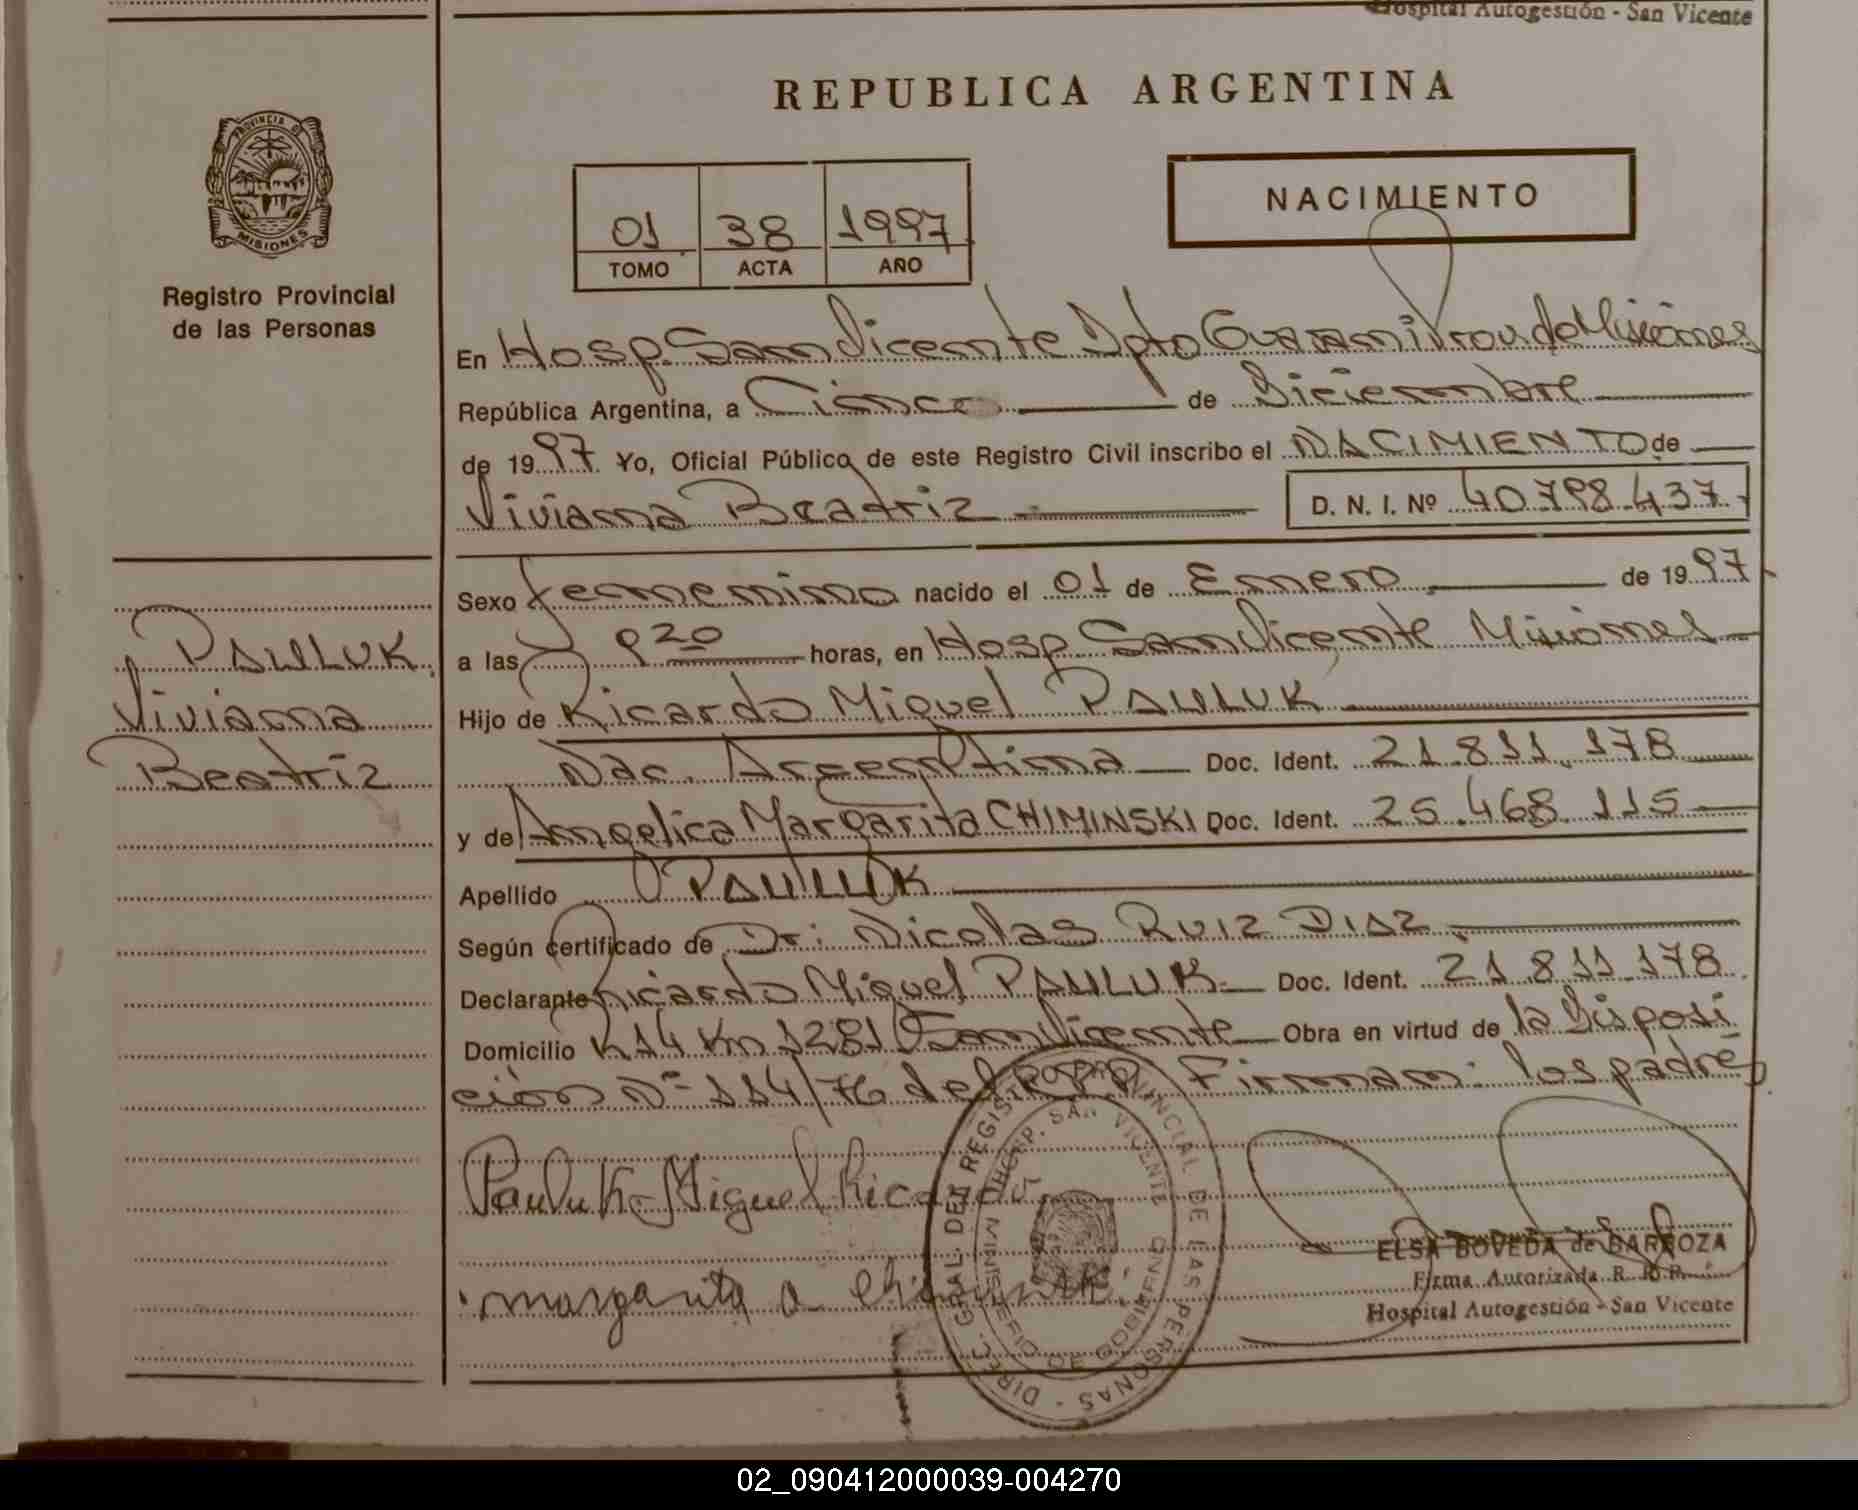 Hospital Autogestión - San Vicente
REPUBLICA ARGENTINA
PROVINCIA DE
MISIONES
Registro Provincial
de las Personas
01 38 1997
TOMO ACTA AÑO
NACIMIENTO
En Hosp. San Vicente Dpto Guarani Prov. de Misiones
República Argentina, a Cinco de Diciembre
de 1997. Yo, Oficial Público de este Registro Civil inscribo el NACIMIENTO de
Viviana Beatriz D. N. I. Nº 40.798.437.
Sexo femenino nacido el 01 de Enero de 1997
a las 9 20 horas, en Hosp San Vicente Misiones
Hijo de Ricardo Miguel PAULUK
Nac. Argentina Doc. Ident. 21.811.178
y de Angelica Margarita CHIMINSKI Doc. Ident. 25.468.115
Apellido PAULUK
Según certificado de Dr: Nicolas RUIZ DIAZ
Declarante Ricardo Miguel PAULUK Doc. Ident. 21 811 178
Domicilio R14 Km 1281 San Vicente Obra en virtud de la Disposi
ción Nº 114/76 del R.P.P. Firman: los padres
PAULUK
Viviana
Beatriz
Pauluk Miguel Ricardo
margarita a
DIREC. GRAL. DEL REGISTRO PROVINCIAL DE LAS PERSONAS
HOSP. SAN VICENTE
MINISTERIO DE GOBIERNO
ELSA BOVEDA de BARROZA
Firma Autorizada R. P. P.
Hospital Autogestión - San Vicente
02_090412000039-004270